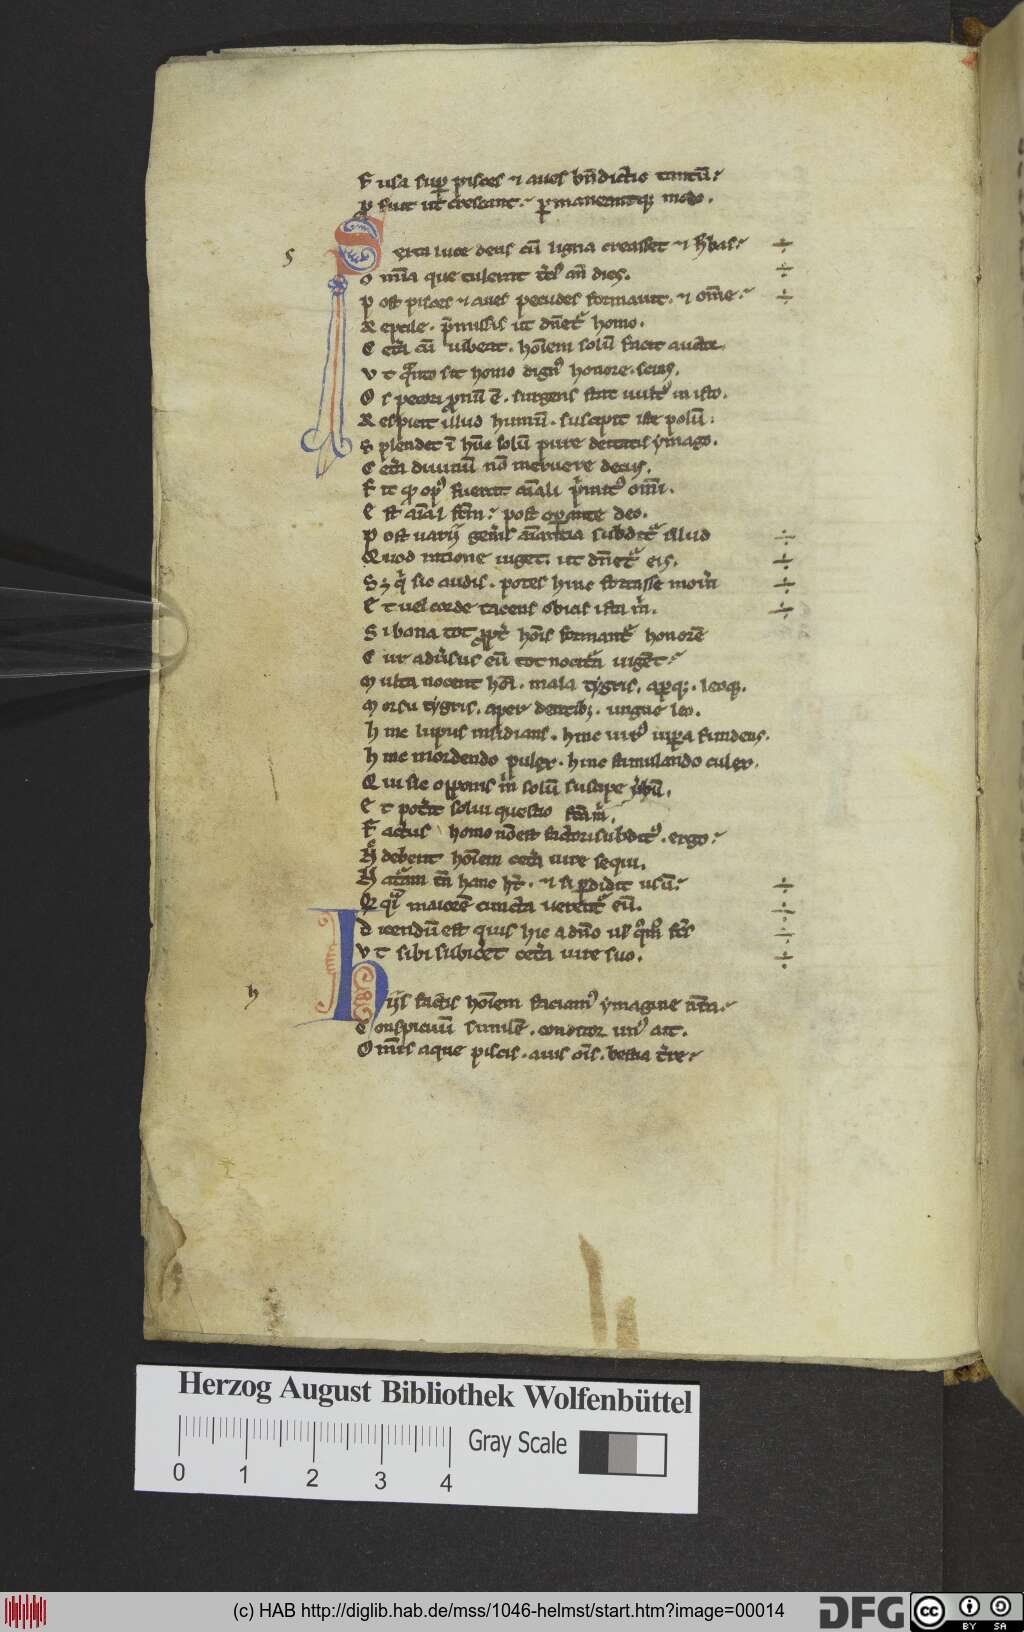 F usa sup̄ pisces ⁊ aues bn̄dictio tantū⹎
p̱ fuit ut crescant. ꝑmaneantq; modo.
S erta luce deus cū ligna creasset ⁊ h̓bas⹎ ÷
s
o mīa que tulerat t̓cꝰ an̄ dies. ÷
p ost pisces ⁊ aues pecudes formauit. ⁊ om̄e⹎ ÷
R eptile. p̄missis ut dn̄et̉ homo.
C et̓a cū iubeat. hoīem solū facit
v t q̃nto sit homo dignꝰ honore. scias.
O s pecori pronū ē. surgens stat uultꝰ in isto.
R espicit illud humū. suscipit iste polū.
S plendet ī hūc solū pure deitatis ymago.
C et̓a diuinū nō meruere decus.
F it ꝙ opꝰ fuerat aīali p̓mitꝰ om̄i.
E st aīal post op̱ante deo.
p ost uarij gen̓is aīantia subdit̉ illud ÷
Quod ratione uiget. ut dn̄et̉ eis. ÷
S ꝫ q̓ sic audis. potes hinc fortasse mou̓i ÷
E t uel corde tacens obicis ista m̓. ÷
S i bona tot ꝓpt̓ hoīs formant̉ honorē
C ur adu̓sus eū tot nocit̓a uigēt⹎
m ulta nocent hoī. mala tygris. aꝑq;. leoq;.
m orsu tygris. aper dentibꝫ. ungue leo.
h inc lupus insidians. hinc uirꝰ uiꝑa fundens.
h inc mordendo pulex. hinc stimulando culex.
Q ui sic opponis m̓ solū suscipe u̓bū.
E t pot̓it solui questio
F actus homo nō est factori subditꝰ. ergo⹎
N debent hoīem cet̓a iure sequi.
N at̉am tn̄ hanc hn̄t. ⁊ si ꝑdidit usū⹎ ÷
Q maiorē cuncta uerent̉ eū. ÷
d icendū est quis hic a dn̄o ÷
v t sibi subic̓et cet̓a iure suo. ÷
h
H ijs factis hoīem faciamꝰ ymagine nr̄a⹎
C onspicuū similē. conditor unꝰ ait.
O mīs aque piscis. auis oīs. bestia t̓re⹎
Herzog August Bibliothek Wolfenbüttel
0 1 2 3 4
Gray Scale
(c) HAB http://diglib.hab.de/mss/1046-helmst/start.htm?image=00014
DFG
cc BY SA